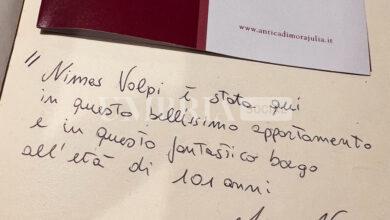 www.anticadimorajulia.it
" Nimes Volpi è stata qui
in questo bellissimo appartamento
e in questo fantastico borgo
all'età di 101 anni